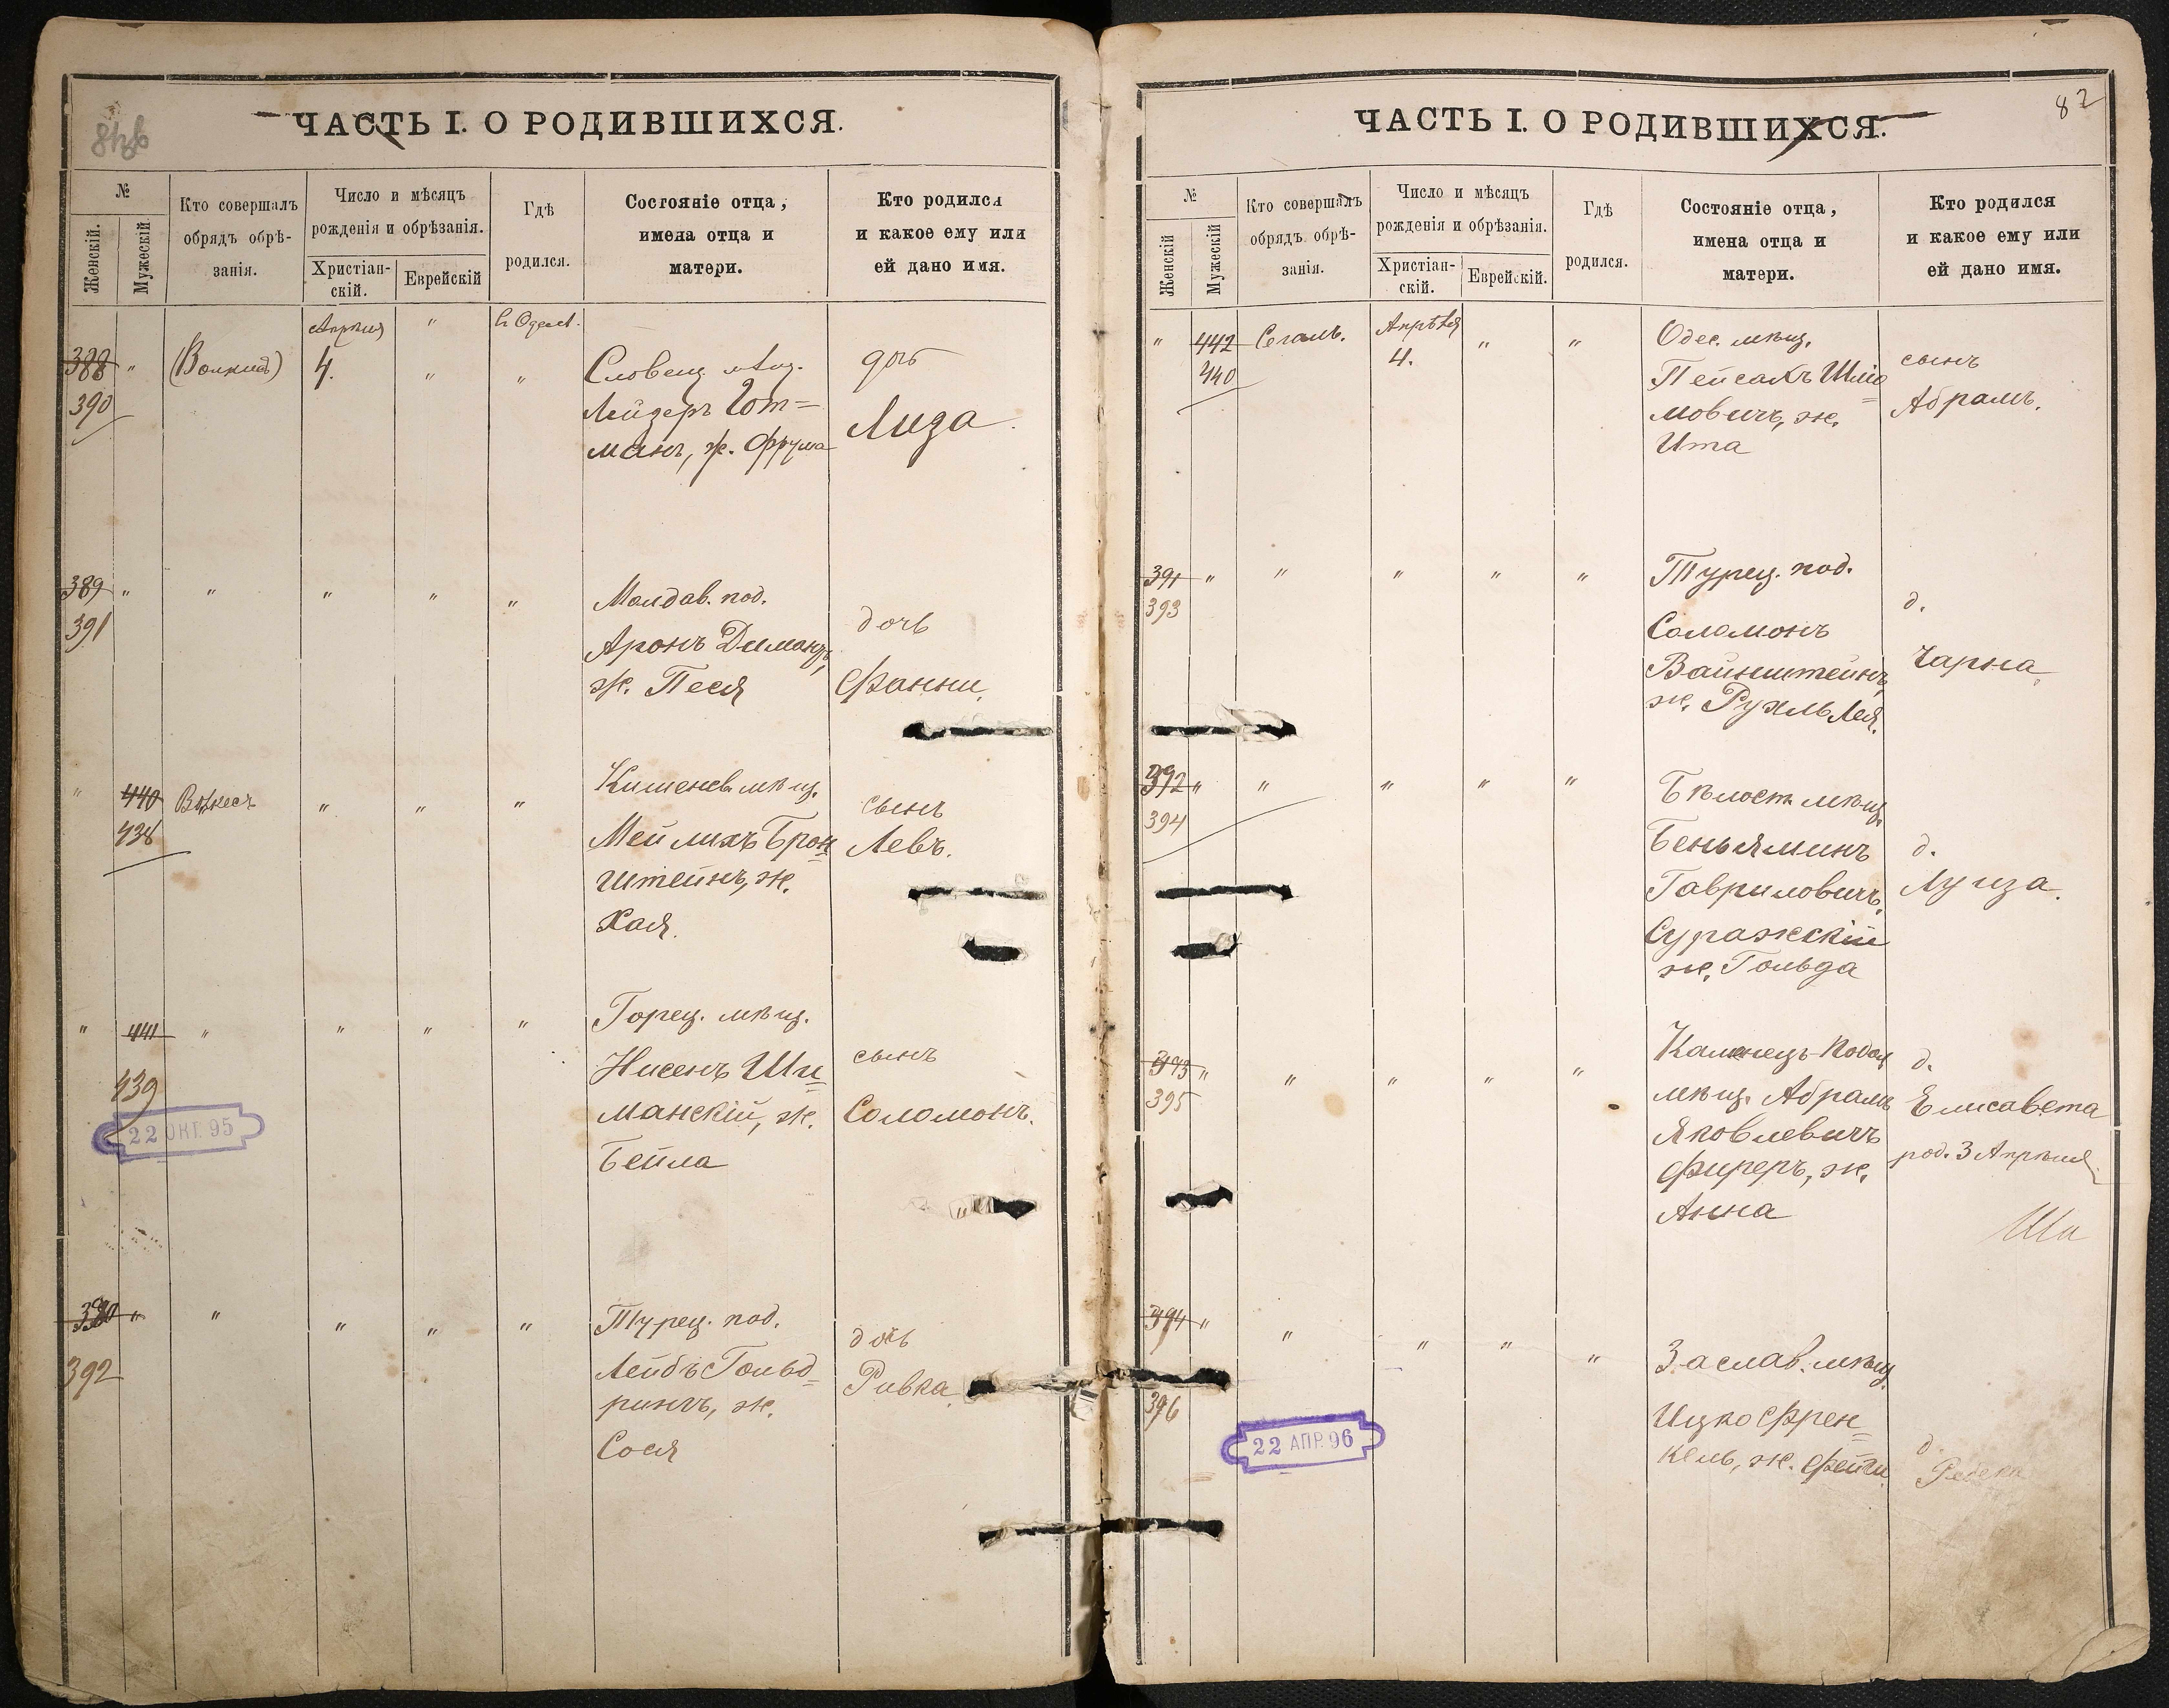 ЧАСТЬ I. О РОДИВШИХСЯ.
№
Женскій.
Мужескій
Кто совершалъ
обрядъ обрѣ-
занія.
Число и мѣсяцъ
рожденія и обрѣзанія.
Христіан-
скій.
Еврейскій
Гдѣ
родился.
Состояніе отца,
имена отца и
матери.
Кто родился
и какое ему или
ей дано имя.
388 "
390
Апрѣля
4.
"
"
"
Словец. мѣщ.
Лейзеръ Гот=
манъ, ж. Фрума
дочь
Лиза.
389 " " " " "
391
Молдав. под.
Аронъ Димантъ,
ж. Песя
дочь
Фанни.
" 440 " " "
438
Кишенев. мѣщ.
Мейлихъ Брон=
штейнъ, ж.
Хая.
сынъ
Левъ.
" 441 " " " "
439
Горец. мѣщ.
Нисенъ Ши=
манскій, ж.
Бейла
сынъ
Соломонъ.
22 ОКТ. 95
390 " " " " "
392
Турец. под.
Лейбъ Гольд=
рингъ, ж.
Сося
дочь
Ривка.
82
ЧАСТЬ I. О РОДИВШИХСЯ.
№
Женскій
Мужескій
Кто совершалъ
обрядъ обрѣ-
занія.
Число и мѣсяцъ
рожденія и обрѣзанія.
Христіан-
скій.
Еврейскій.
Гдѣ
родился.
Состояніе отца,
имена отца и
матери.
Кто родился
и какое ему или
ей дано имя.
" 442 Сегаль. Апрѣля " "
440
4.
Одес. мѣщ.
Пейсахъ Шлио=
мовичъ, ж.
Ита
сынъ
Абрамъ.
391 " " " " "
393
Турец. под.
Соломонъ
Вайнштейнъ,
ж. Рухль Лея.
д.
Чарна.
392 " " " " "
394
Бѣлост. мѣщ.
Беньяминъ
Гавриловичъ
Суражскій
ж. Гольда
д.
Луиза.
393 " " " " "
395
Каменец-Подол
мѣщ. Абрамъ
Яковлевичъ
Фиреръ, ж.
Анна
д.
Елисавета
род. 3 Апрѣля.
394 " " " " "
396
Заслав. мѣщ.
Ицко Френ=
кель, ж. Фейги
д.
22 АПР. 96